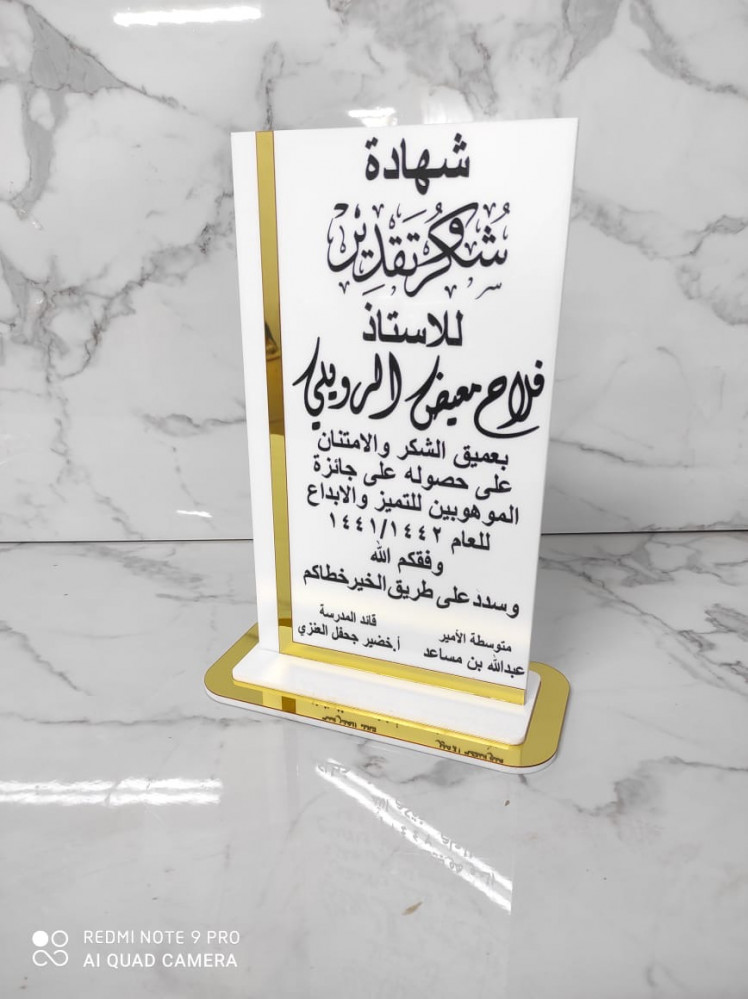 شهادة
شُكر وتَقدير
للاستاذ
فلاح معيض الرويلي
بعميق الشكر والامتنان
على حصوله على جائزة
الموهوبين للتميز والابداع
للعام ١٤٤١/١٤٤٢
وفقكم الله
وسدد على طريق الخير خطاكم
متوسطة الأمير
عبدالله بن مساعد
قائد المدرسة
أ.خضير جحفل العنزي
REDMI NOTE 9 PRO
AI QUAD CAMERA